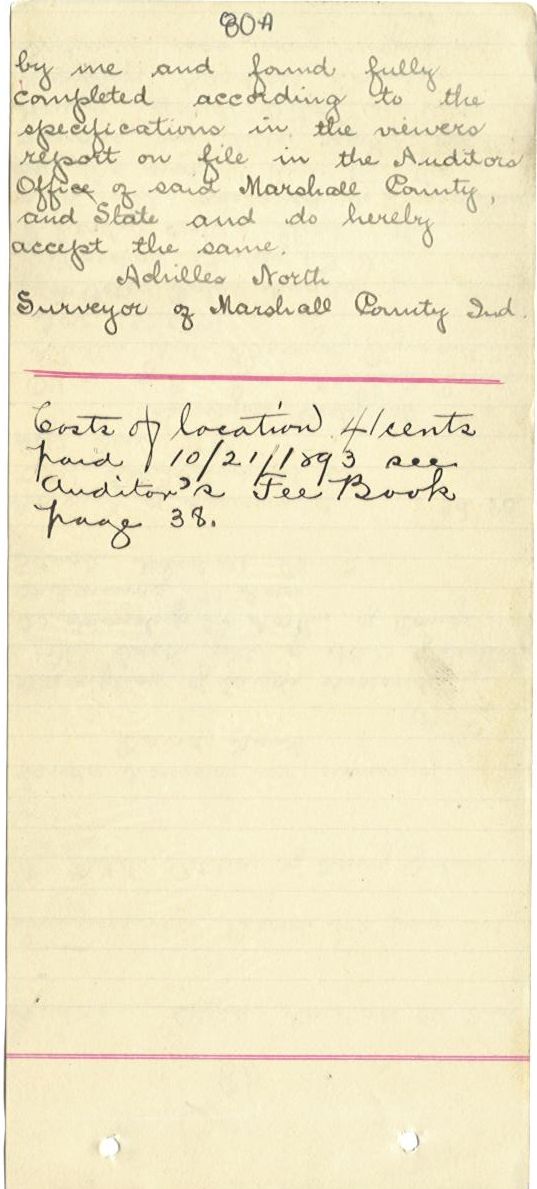 80A
by me and found fully
completed according to the
specifications in the viewers
report on file in the Auditors
Office of said Marshall County,
and State and do hereby
accept the same.
Achilles North
Surveyor of Marshall County Ind.
Costs of location 41 cents
paid 10/21/1893 see
Auditor's Fee Book
page 38.